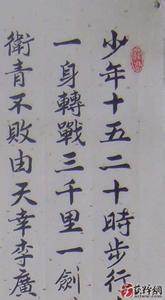 少年十五二十時步行
一身轉戰三千里一劍
衛青不敗由天幸李廣